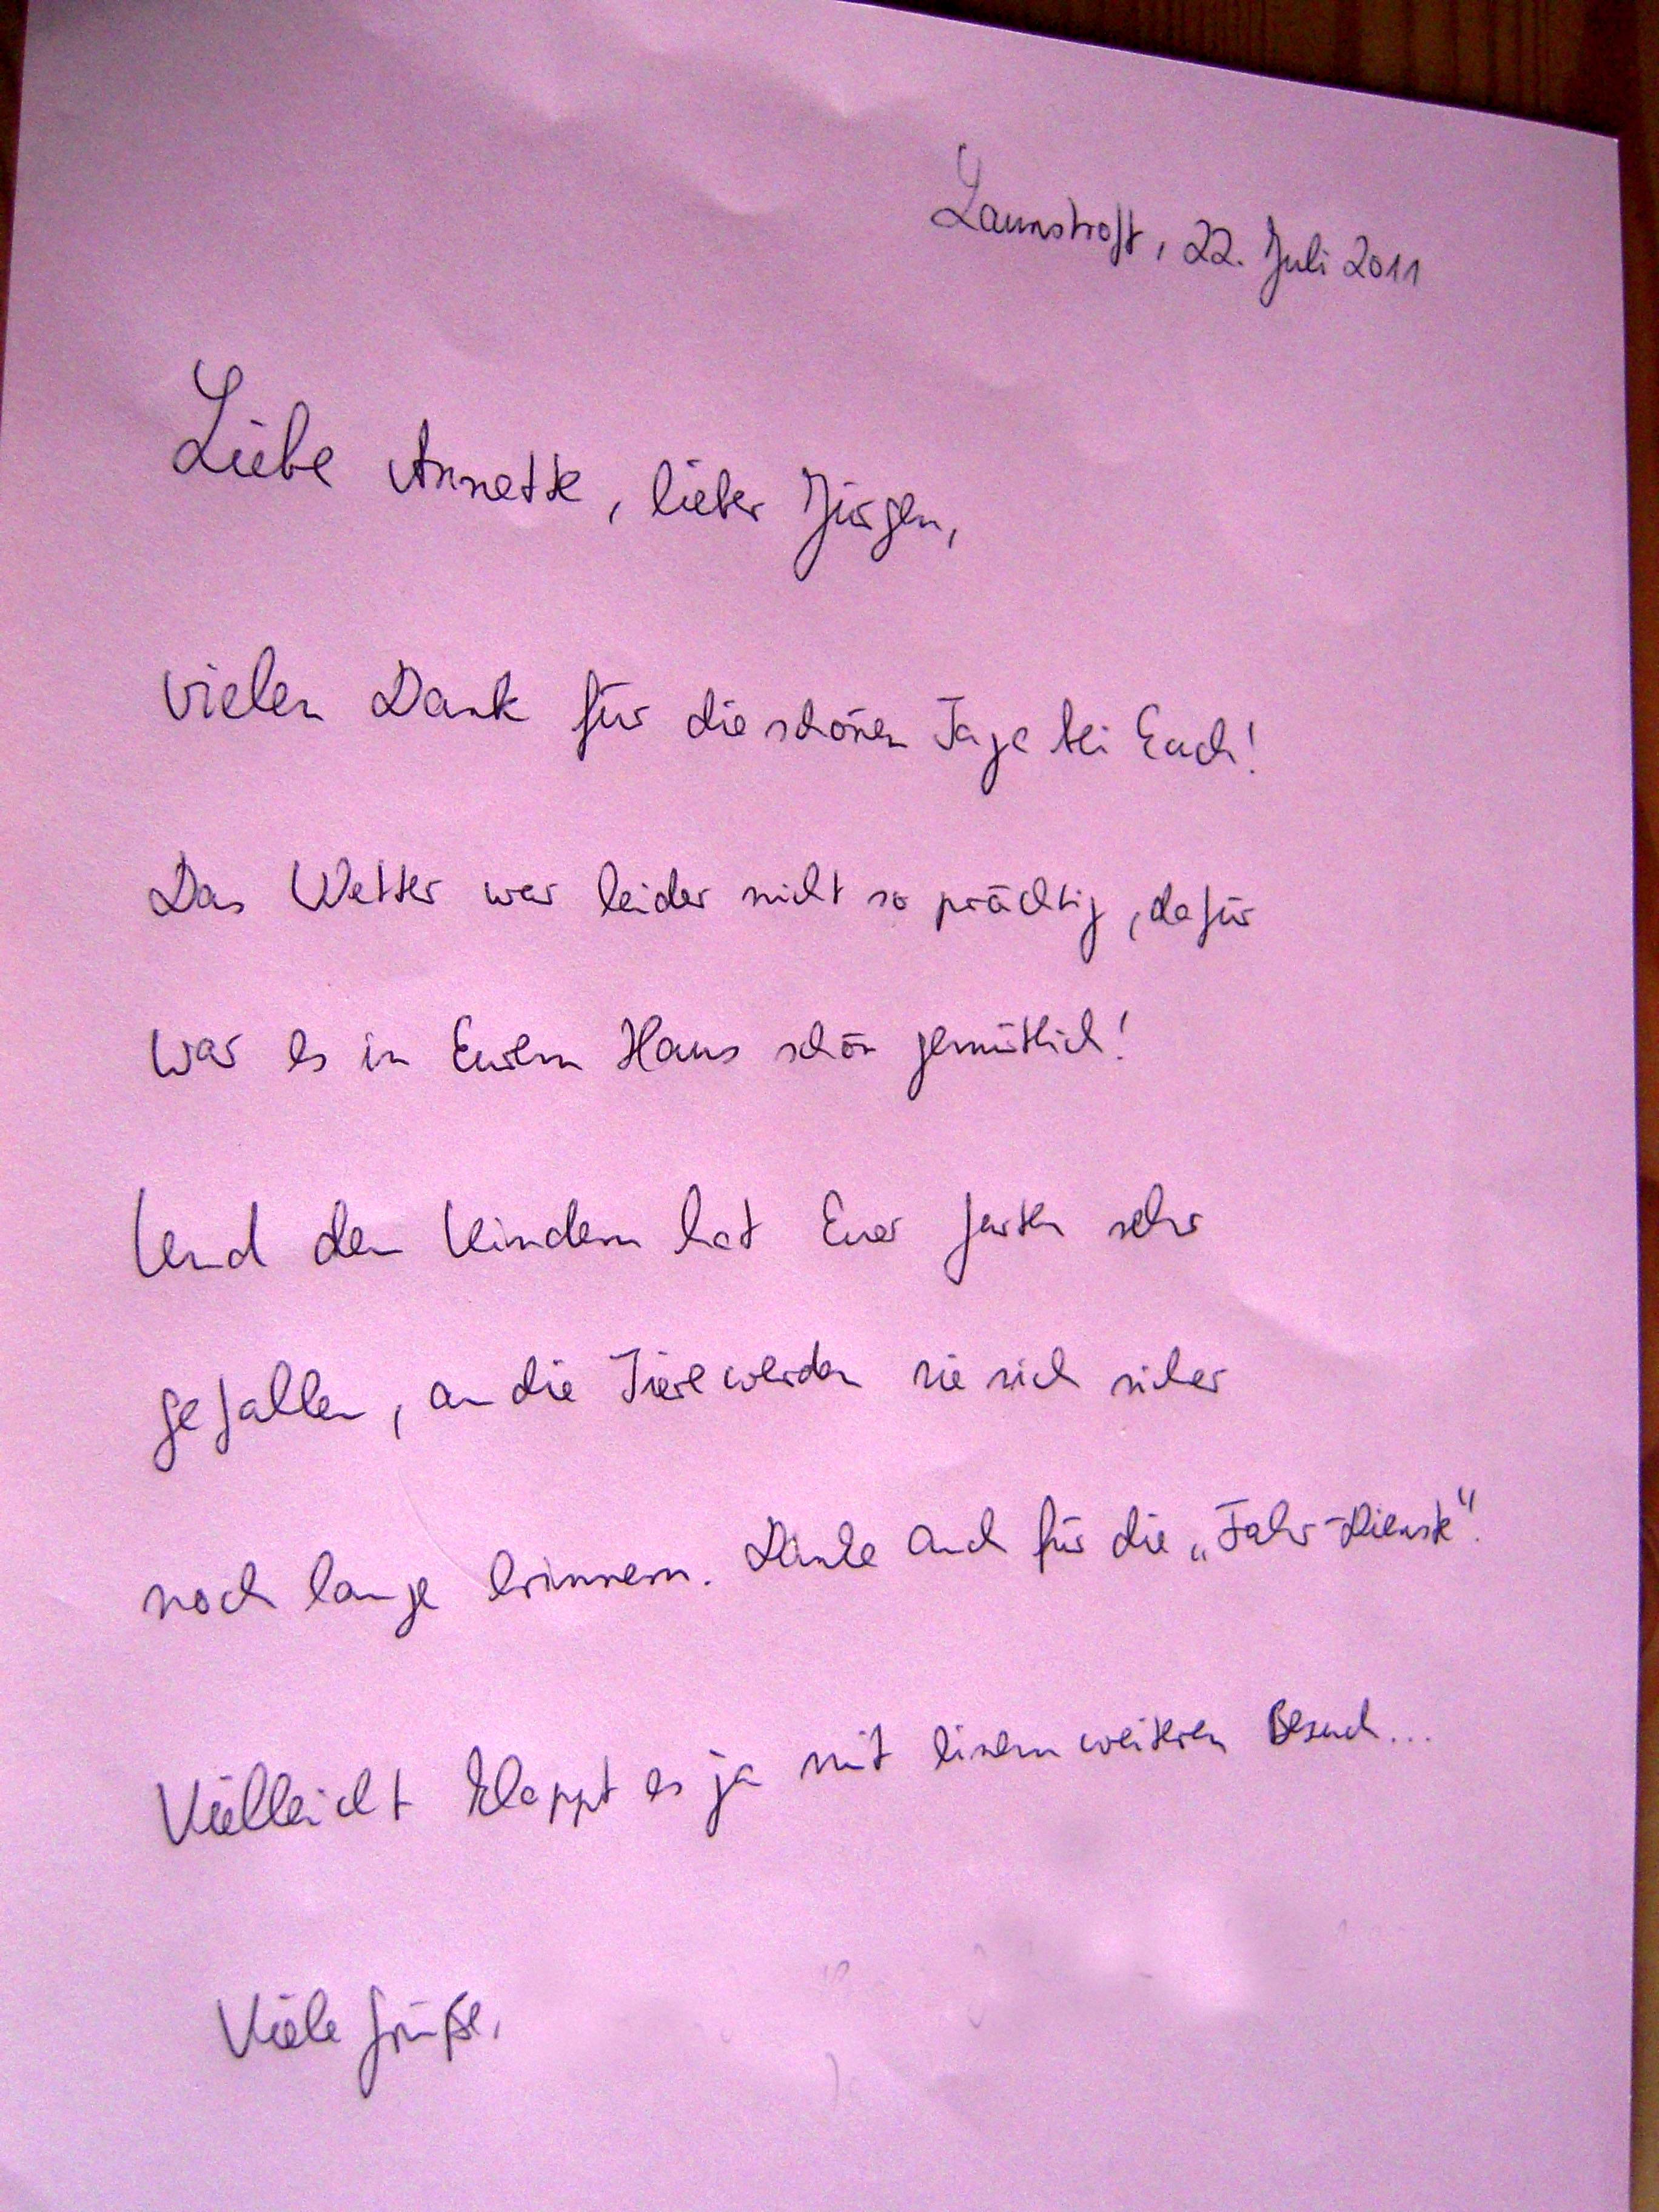 Launstroff, 22. Juli 2011
Liebe Annette, lieber Jürgen,
vielen Dank für die schönen Tage bei Euch!
Das Wetter war leider nicht so prächtig, dafür
war es in Eurem Haus schön gemütlich!
Und den Kindern hat Euer Garten sehr
gefallen, an die Tiere werden sie sich sicher
noch lange erinnern. Danke auch für die „Fahr-Dienste".
Vielleicht klappt es ja mit einem weiteren Besuch...
Viele Grüße,